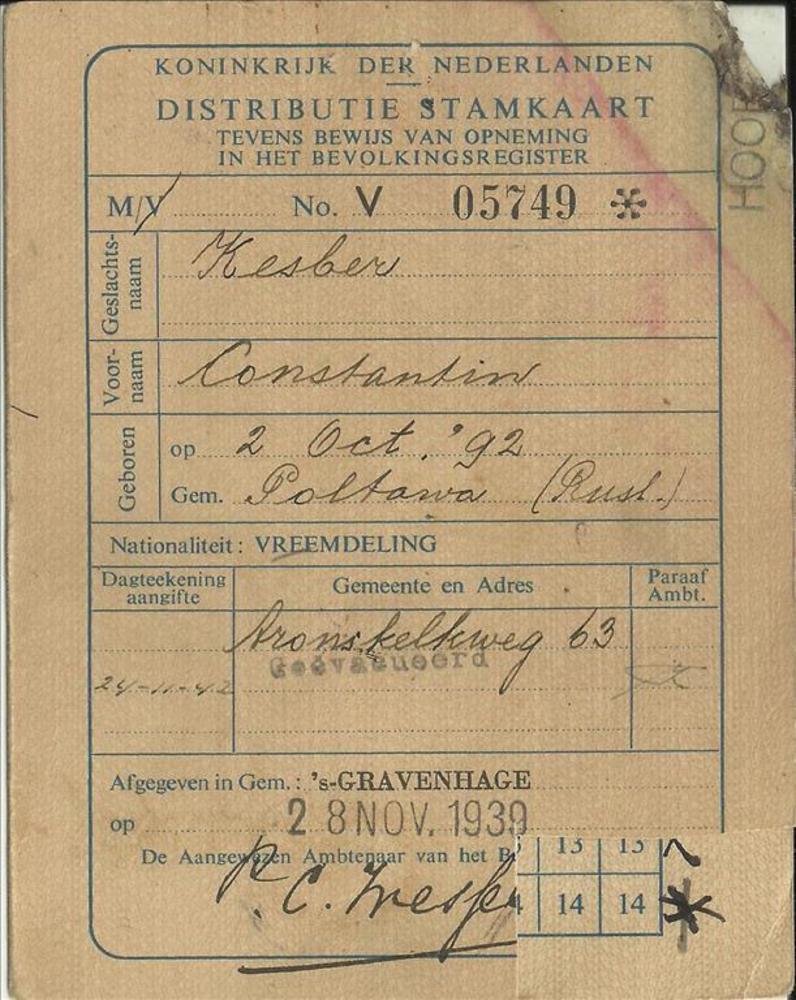 KONINKRIJK DER NEDERLANDEN
DISTRIBUTIE STAMKAART
TEVENS BEWIJS VAN OPNEMING
IN HET BEVOLKINGSREGISTER
M/V No. V 05749 *
HOOF
Geslachts-
naam
Kesber
Voor-
naam
Constantin
Geboren
op 2 Oct. '92
Gem. Poltawa (Rusl.)
Nationaliteit: VREEMDELING
Dagteekening
aangifte
Gemeente en Adres
Paraaf
Ambt.
Aronskelkweg 63
Geëvacueerd
24-11-42
Afgegeven in Gem.: 's-GRAVENHAGE
op 28 NOV. 1939
De Aangewezen Ambtenaar van het B
13 13
14 14